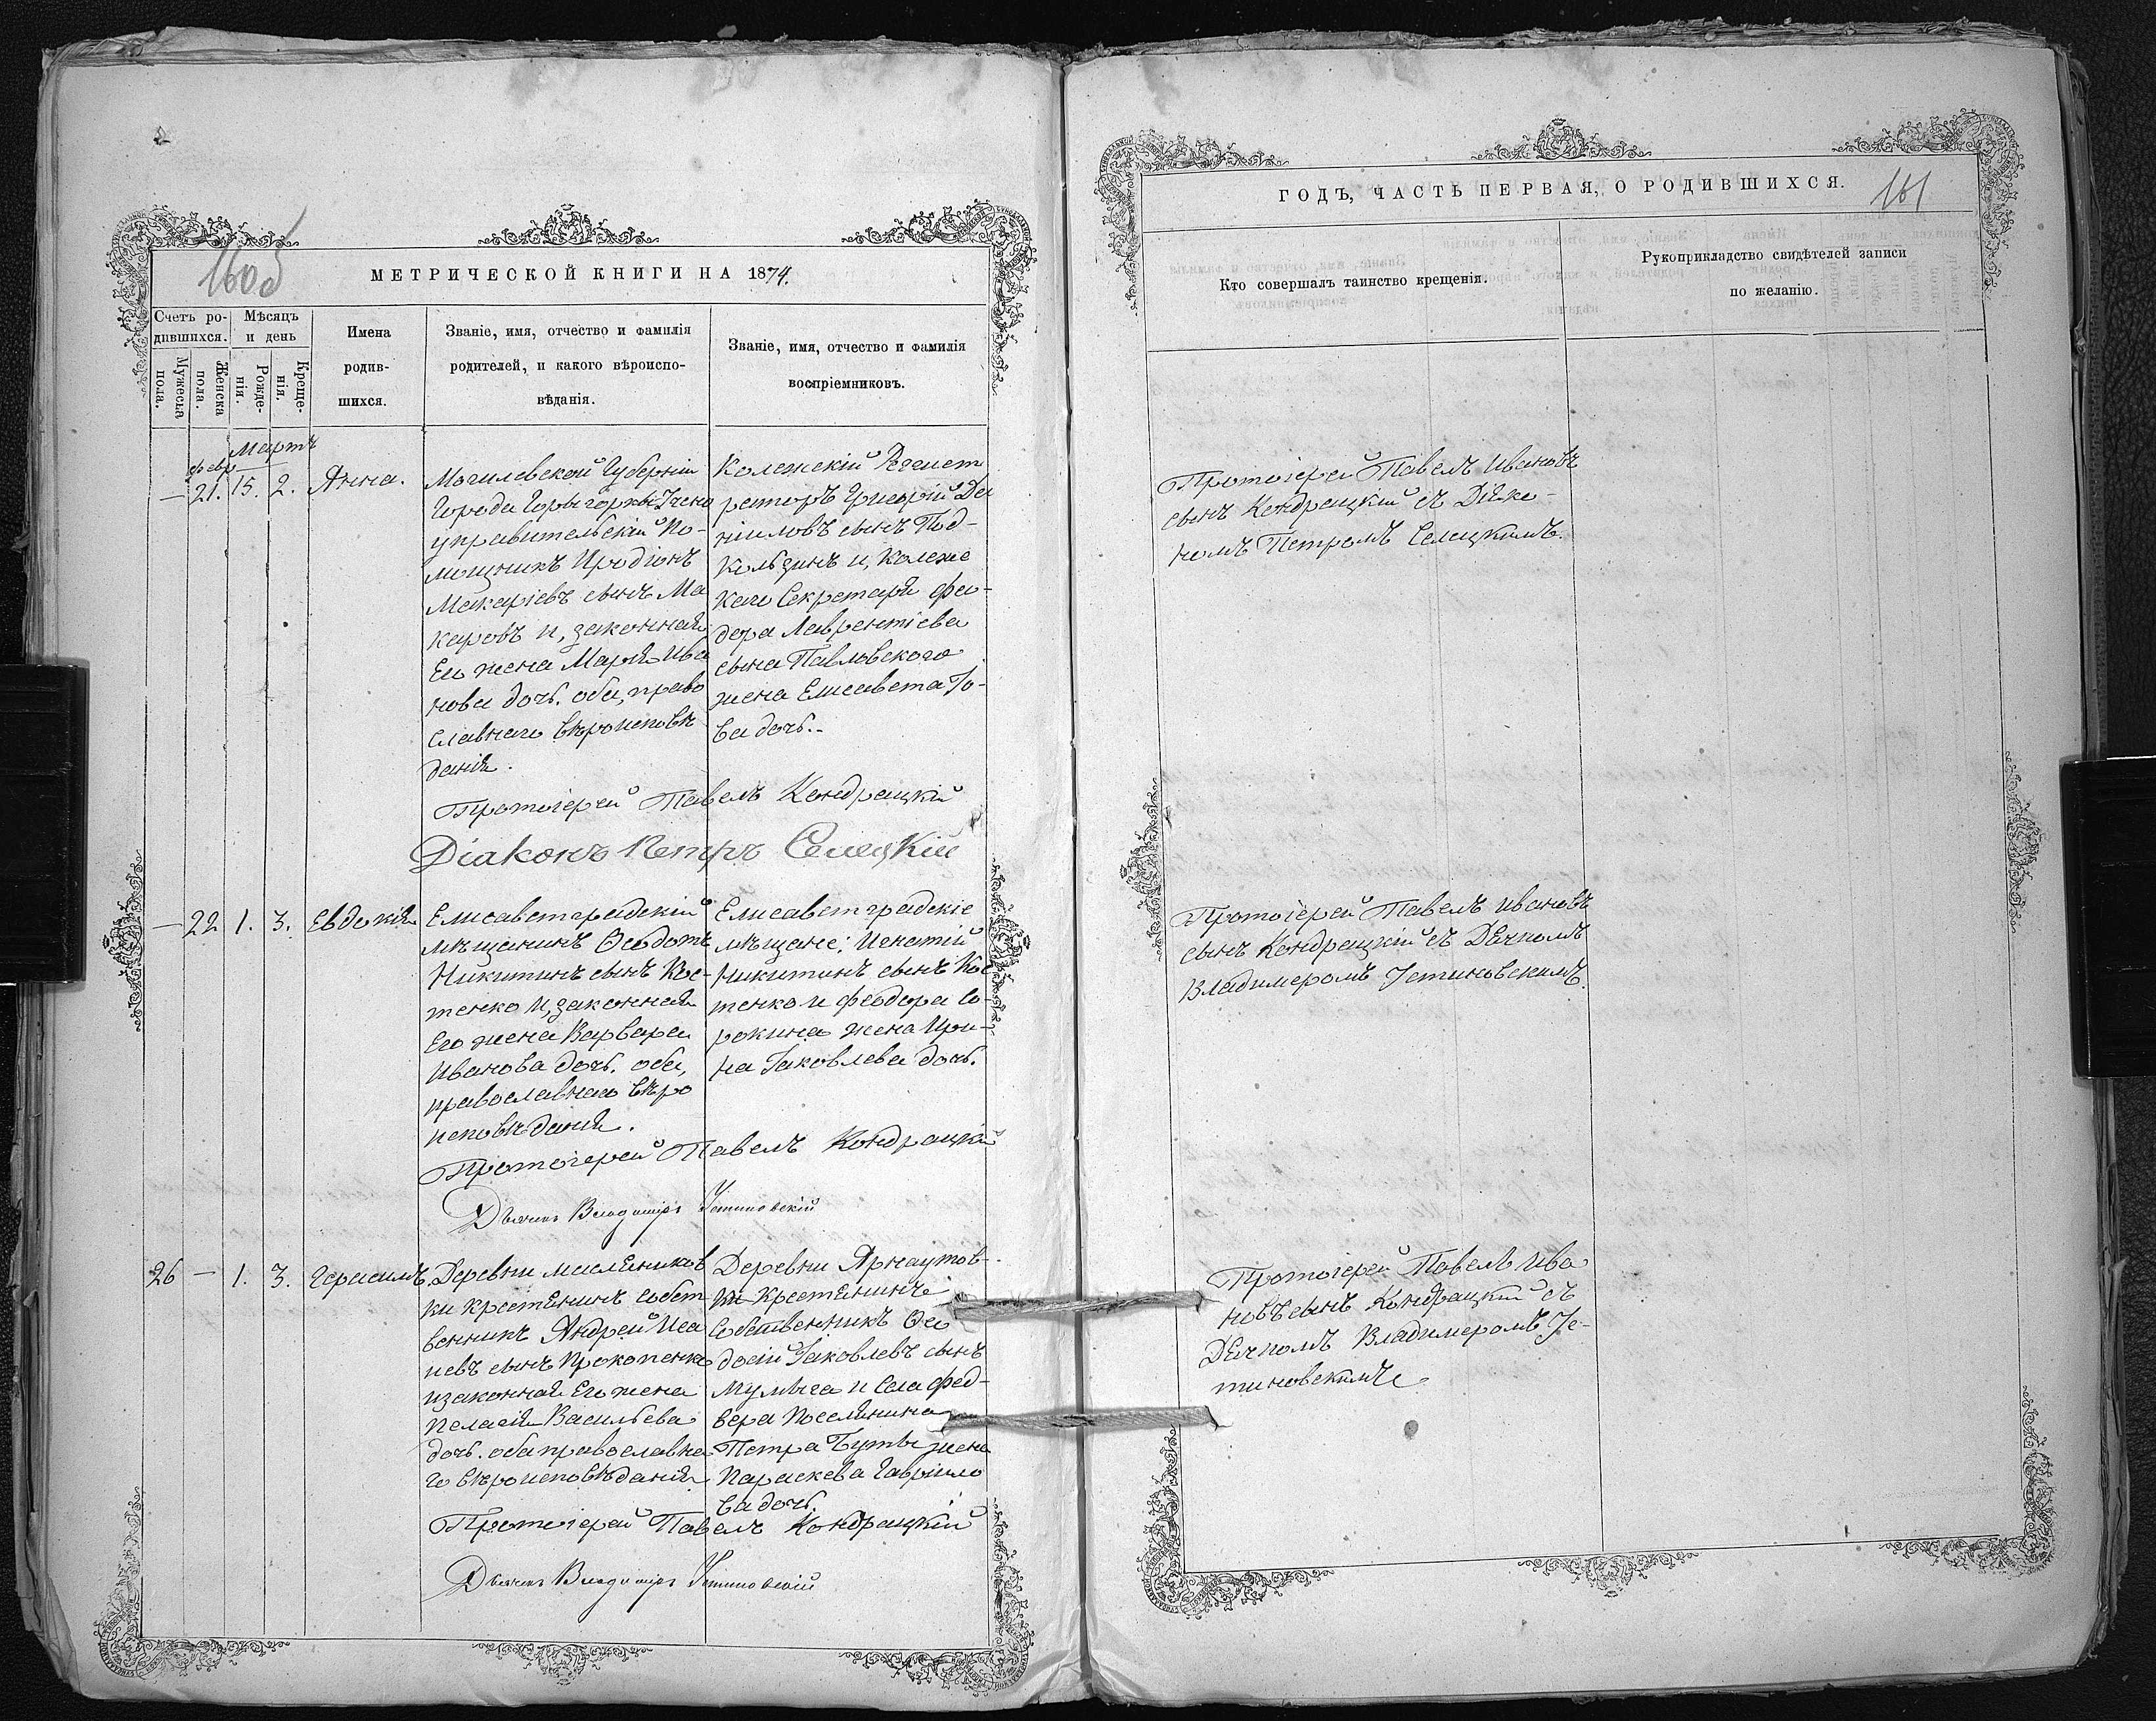 160об
МЕТРИЧЕСКОЙ КНИГИ НА 1874.
Счетъ ро-
дившихся.
Мѣсяцъ
и день
Мужеска
пола.
Женска
пола.
Рожде-
нія.
Креще-
нія.
Имена
родив-
шихся.
Званіе, имя, отчество и фамилія
родителей, и какого вѣроиспо-
вѣданія.
Званіе, имя, отчество и фамилія
воспріемниковъ.
Февр. Мартъ
— 21. 15. 2. Анна.
Могилевской Губерніи
Города Горыгорки
управительскій По-
мощникъ Иродіонъ
Макаріевъ сынъ Ма
каровъ и, законная
Его жена Марія Ива
нова дочь. оба, право
славнаго вѣроисповѣ
данія.
Колежскій Регист
реторъ Григорій Да
ніиловъ сынъ Под-
кользинъ и, Колеже
каго Секретаря Фео-
дора Лаврентіева
сына Павловского
жена Елисавета Іо-
ва дочь.-
Протоіерей Павелъ Кондрацкій
Діаконъ Петръ Селецкій
— 22 1. 3. Евдокія
Елисаветградскій
мѣщанинъ Ѳеодотъ
Никитинъ сынъ Кос-
тенко и, законная
Его жена Варвара
Иванова дочь. оба,
православнаго вѣро
исповѣданія.
Елисаветградскіе
мѣщане: Игнатій
Никитинъ сынъ Кос
тенко и Феодора Со-
рокина жена Ири-
на Іаковлева дочь.
Протоіерей Павелъ Кондрацкій
Дьячекъ Владиміръ Устиновскій
26 — 1. 3. Герасимъ.
Деревни Маслеников
ки крестянинъ собст
венникъ Андрей Иса
иевъ сынъ Прокопенко
изаконная Его жена
Пелагія Васильева
дочь. оба православна
го вѣроисповѣданія
Деревни Арнаутов-
ки Крестянинъ
Собственникъ Ѳео
досій Іаковлевъ сынъ
Мулыга и Села Фед-
вера Поселянина
Петра Буты жена
Параскева Гавріило
ва дочь.
Протоіерей Павелъ Кондрацкій
Дьячекъ Владиміръ Устиновскій
ГОДЪ, ЧАСТЬ ПЕРВАЯ, О РОДИВШИХСЯ.
161
Кто совершалъ таинство крещенія.
Рукоприкладство свидѣтелей записи
по желанію.
Протоіерей Павелъ Ивановъ
сынъ Кондрацкій съ Діяко-
номъ Петромъ Селецкимъ.
Протоіерей Павелъ Ивановъ
сынъ Кондрацкій съ Дячкомъ
Владимеромъ Устиновскимъ.
Протоіерей Павелъ Ива
новъ сынъ Кондрацкій съ
Дячкомъ Владимеромъ Ус-
тиновскимъ